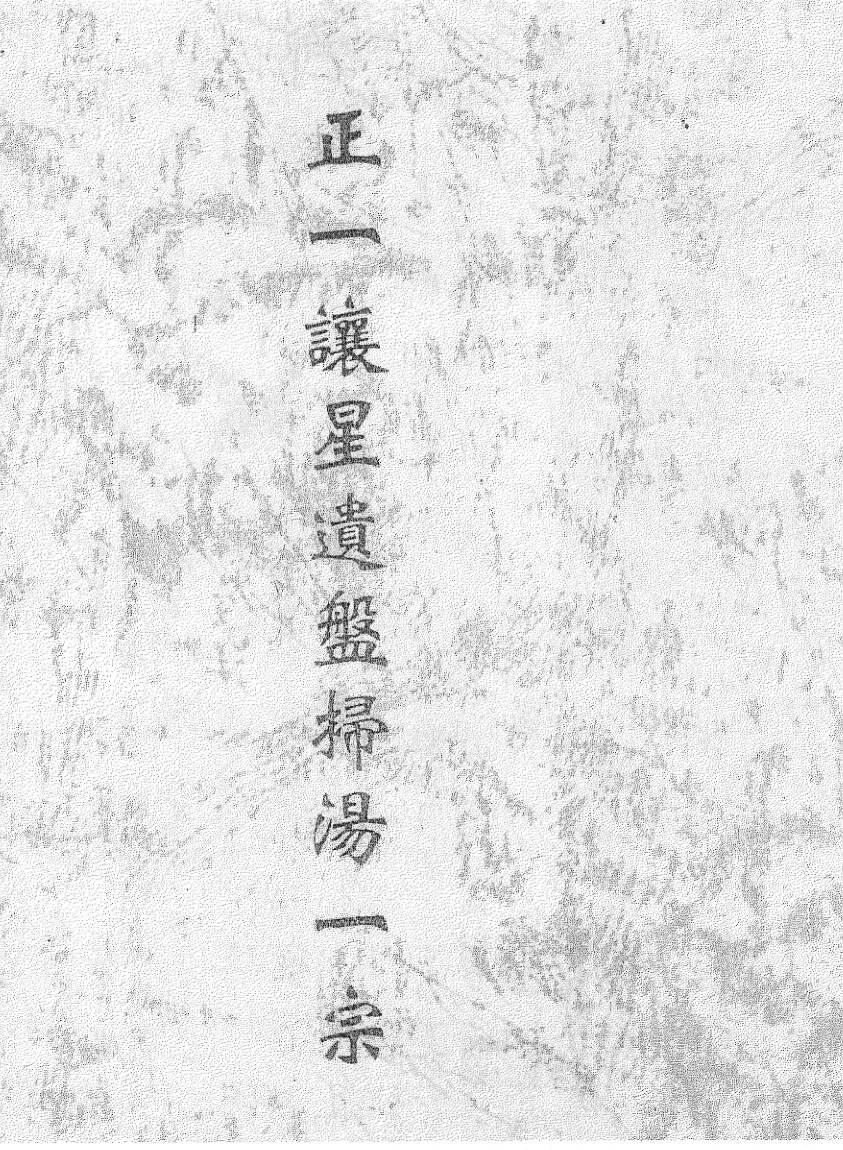 正一讓星遺盤掃湯一宗